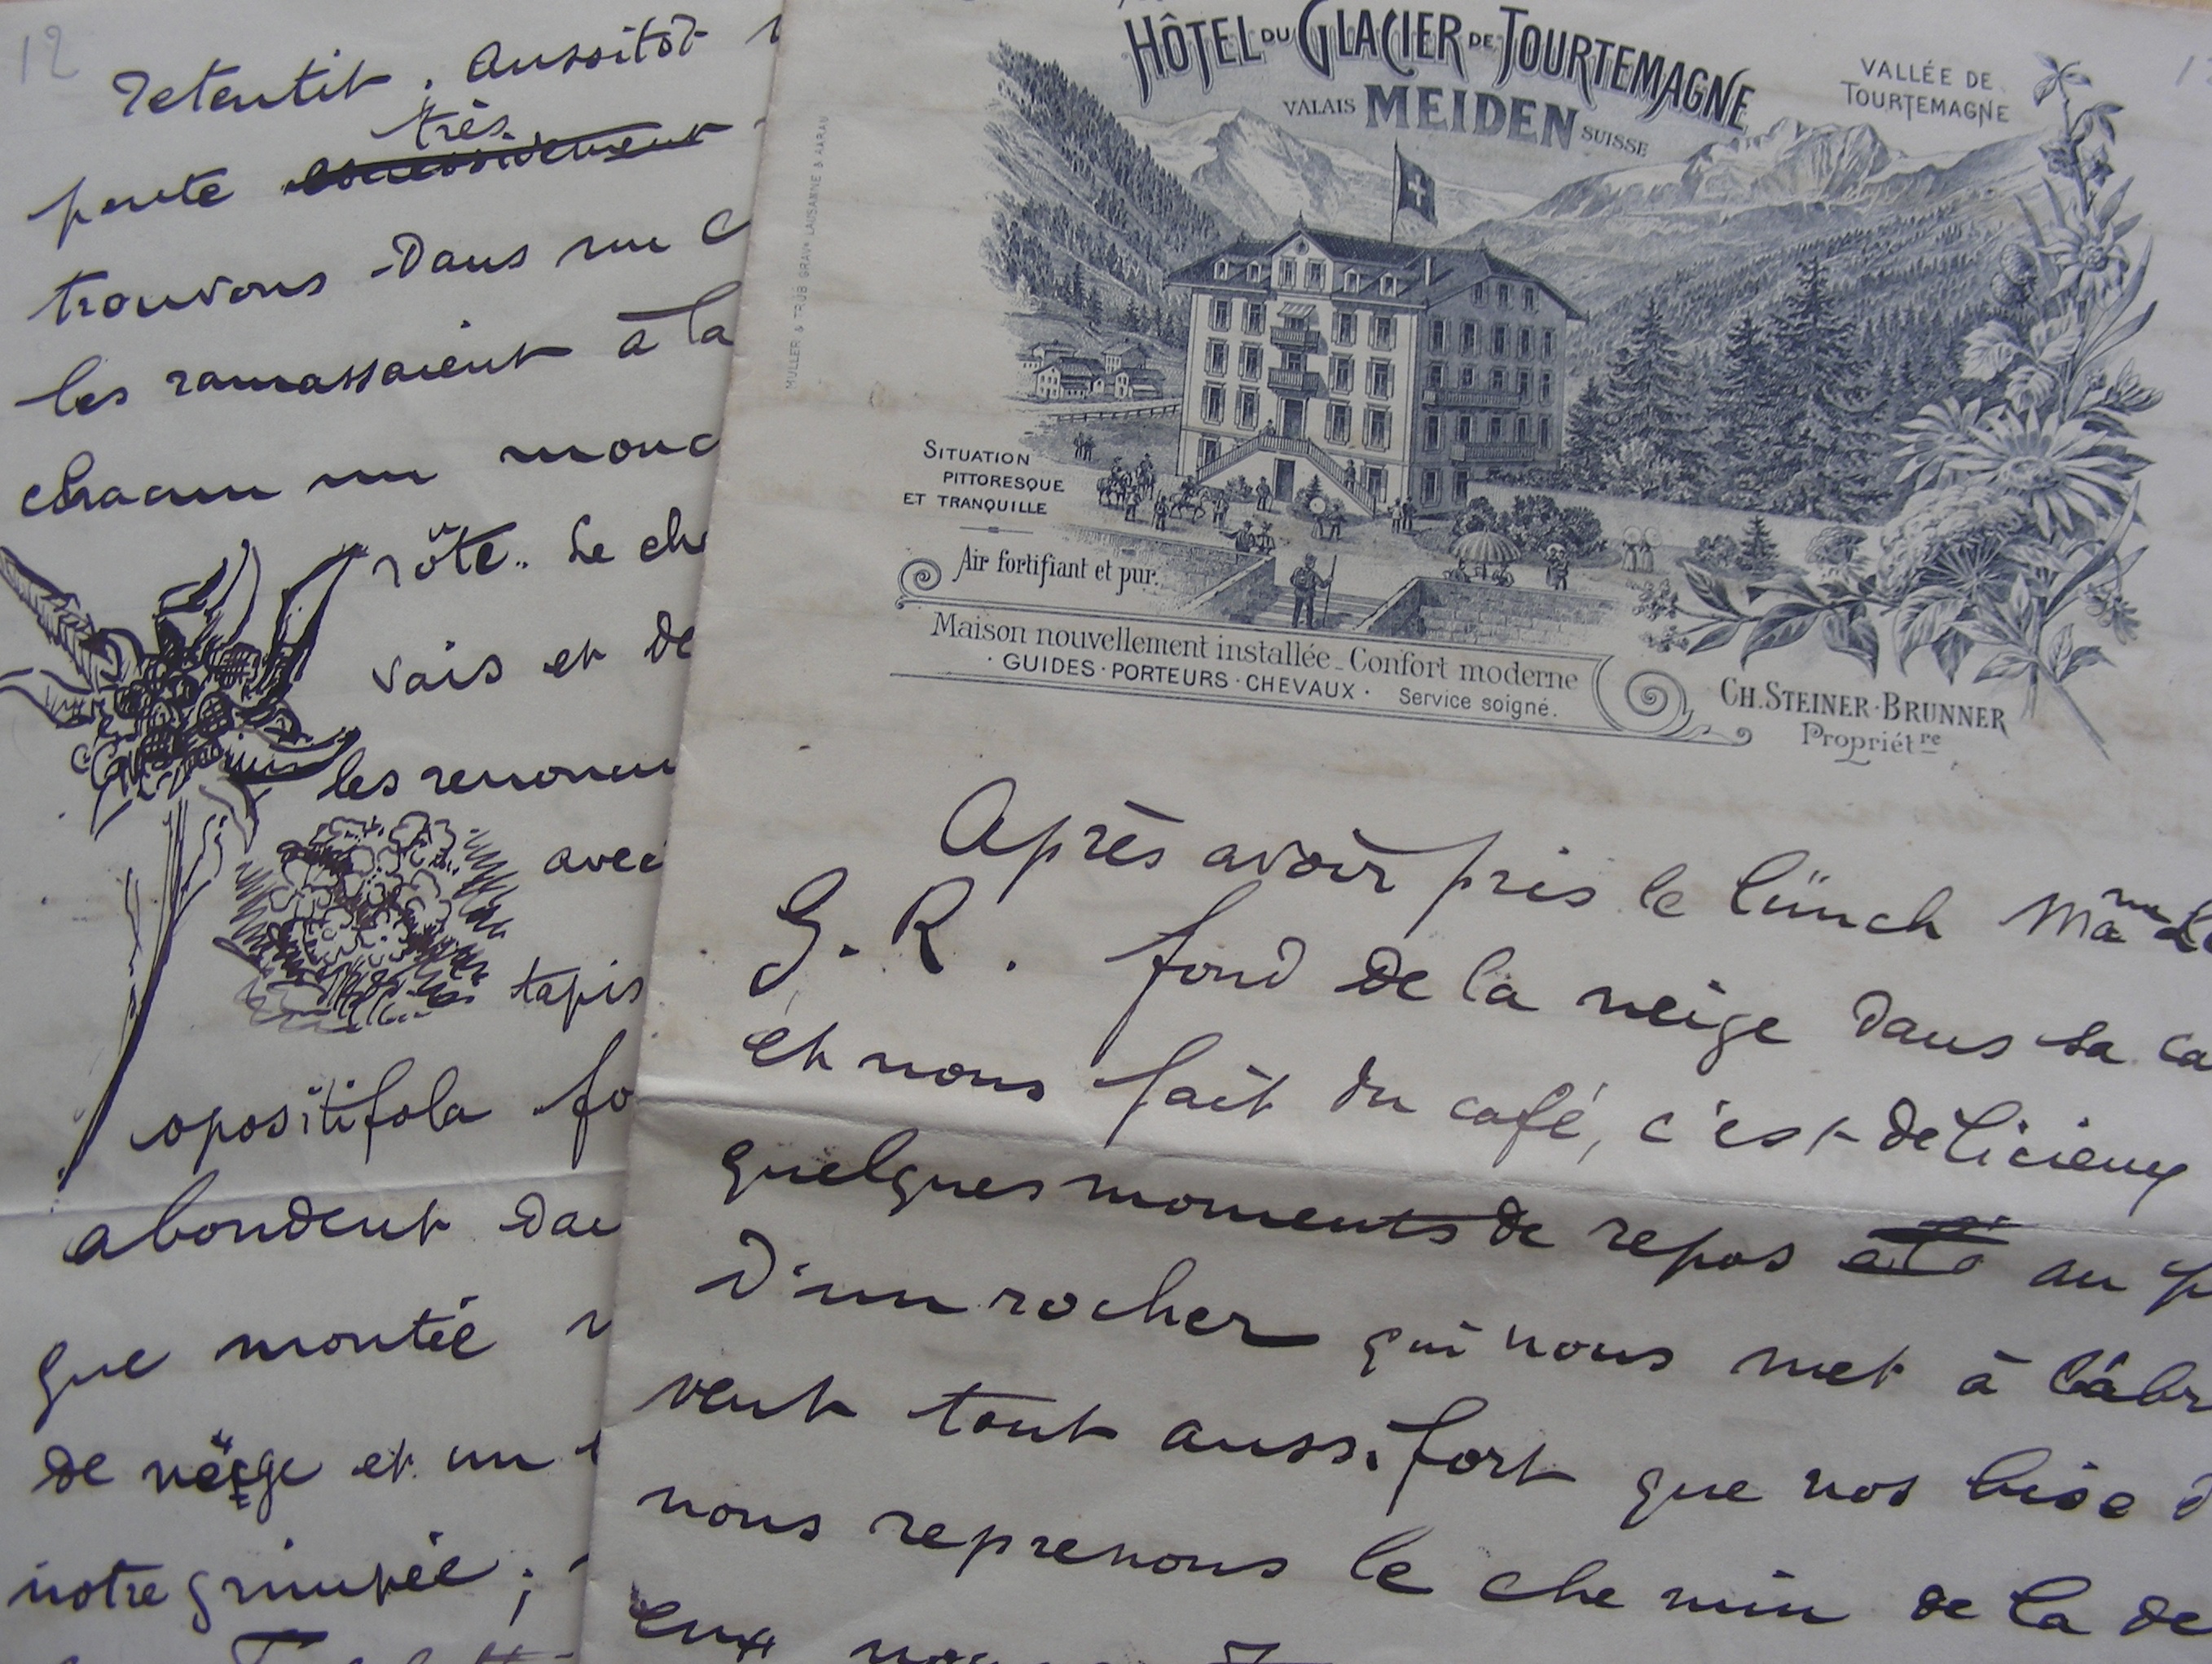 12
retentit. Aussitôt
très
pente
trouvons dans un
les ramassaient à la
chacun un
rôte.. Le
vais et de
les
avec
tapis
opositifola
abondent
que montée
de neige et un
notre grimpée ;
HÔTEL DU GLACIER DE TOURTEMAGNE
VALAIS MEIDEN SUISSE
VALLÉE DE
TOURTEMAGNE
MULLER & TRÜB GRAVrs LAUSANNE & AARAU
SITUATION
PITTORESQUE
ET TRANQUILLE
Air fortifiant et pur.
Maison nouvellement installée - Confort moderne
· GUIDES · PORTEURS · CHEVAUX · Service soigné.
CH. STEINER-BRUNNER
Propriétre
Après avoir pris le lünch
G. R. fond de la neige dans sa
et nous fait du café, c'est délicieux
quelques moments de repos au
d'un rocher qui nous met à
vent tout aussi fort que nos bise
nous reprenons le chemin de la